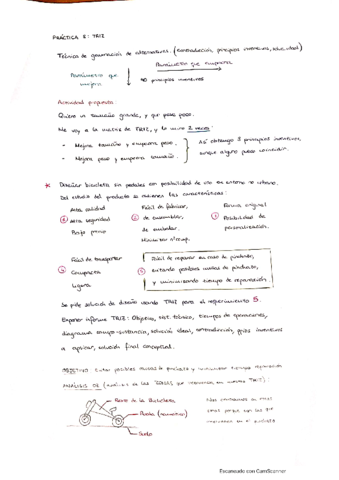 PRÁCTICA 2: TRIZ
Técnica de generación de alternativas. (contradicción, principios inventivos, idealidad)
Parámetro que empeora
Parámetro que mejora
40 principios inventivos
Actividad propuesta:
Quiero un tamaño grande, y que pese poco.
Me voy a la matriz de TRIZ, y la miro 2 veces:
- Mejora tamaño y empeora peso.
- Mejora peso y empeora tamaño.
Así obtengo principios inventivos, aunque alguno puede coincidir.
* Diseñar bicicleta sin pedales con posibilidad de uso en entorno no urbano.
Del estudio del producto se obtienen las características:
Alta calidad
Alta seguridad
Bajo peso
Fácil de fabricar,
de ensamblar,
de embalar.
Minimizar nº comp.
Forma original
Posibilidad de personalización.
Fácil de transportar
Compacta
Ligera
Fácil de reparar en caso de pinchazo,
evitando posibles causas de pinchazo,
y minimizando tiempo de reparación.
Se pide solución de diseño usando TRIZ para el requerimiento 5.
Exponer informe TRIZ: Objetivo, sist. técnico, tiempos de operaciones,
diagrama campo-sustancia, solución ideal, contradicción, ppios inventivos
a aplicar, solución final conceptual.
OBJETIVO: Evitar posibles causas de pinchazo y minimizar tiempo reparación
Resto de la bicicleta
Rueda (neumático)
Suelo
Escaneado con CamScanner